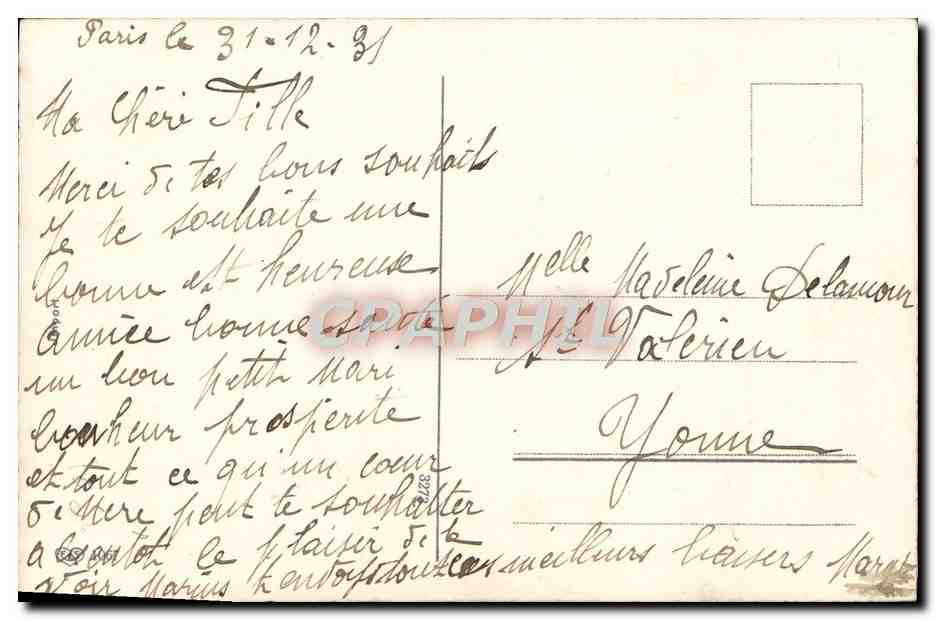 Paris le 31-12-31
Ma Chère Fille
Merci de tes bons souhaits
Je te souhaite une
bonne est heureuse
année bonne santé
un bon petit Mari
bonheur prosperite
et tout ce qu'un cœur
de Mere peut te souhaiter
a bientot le plaisir de te
voir Marius meilleurs baisers
Melle Madeleine Delamour
St Valérien
Yonne
3273
CPAPHIL